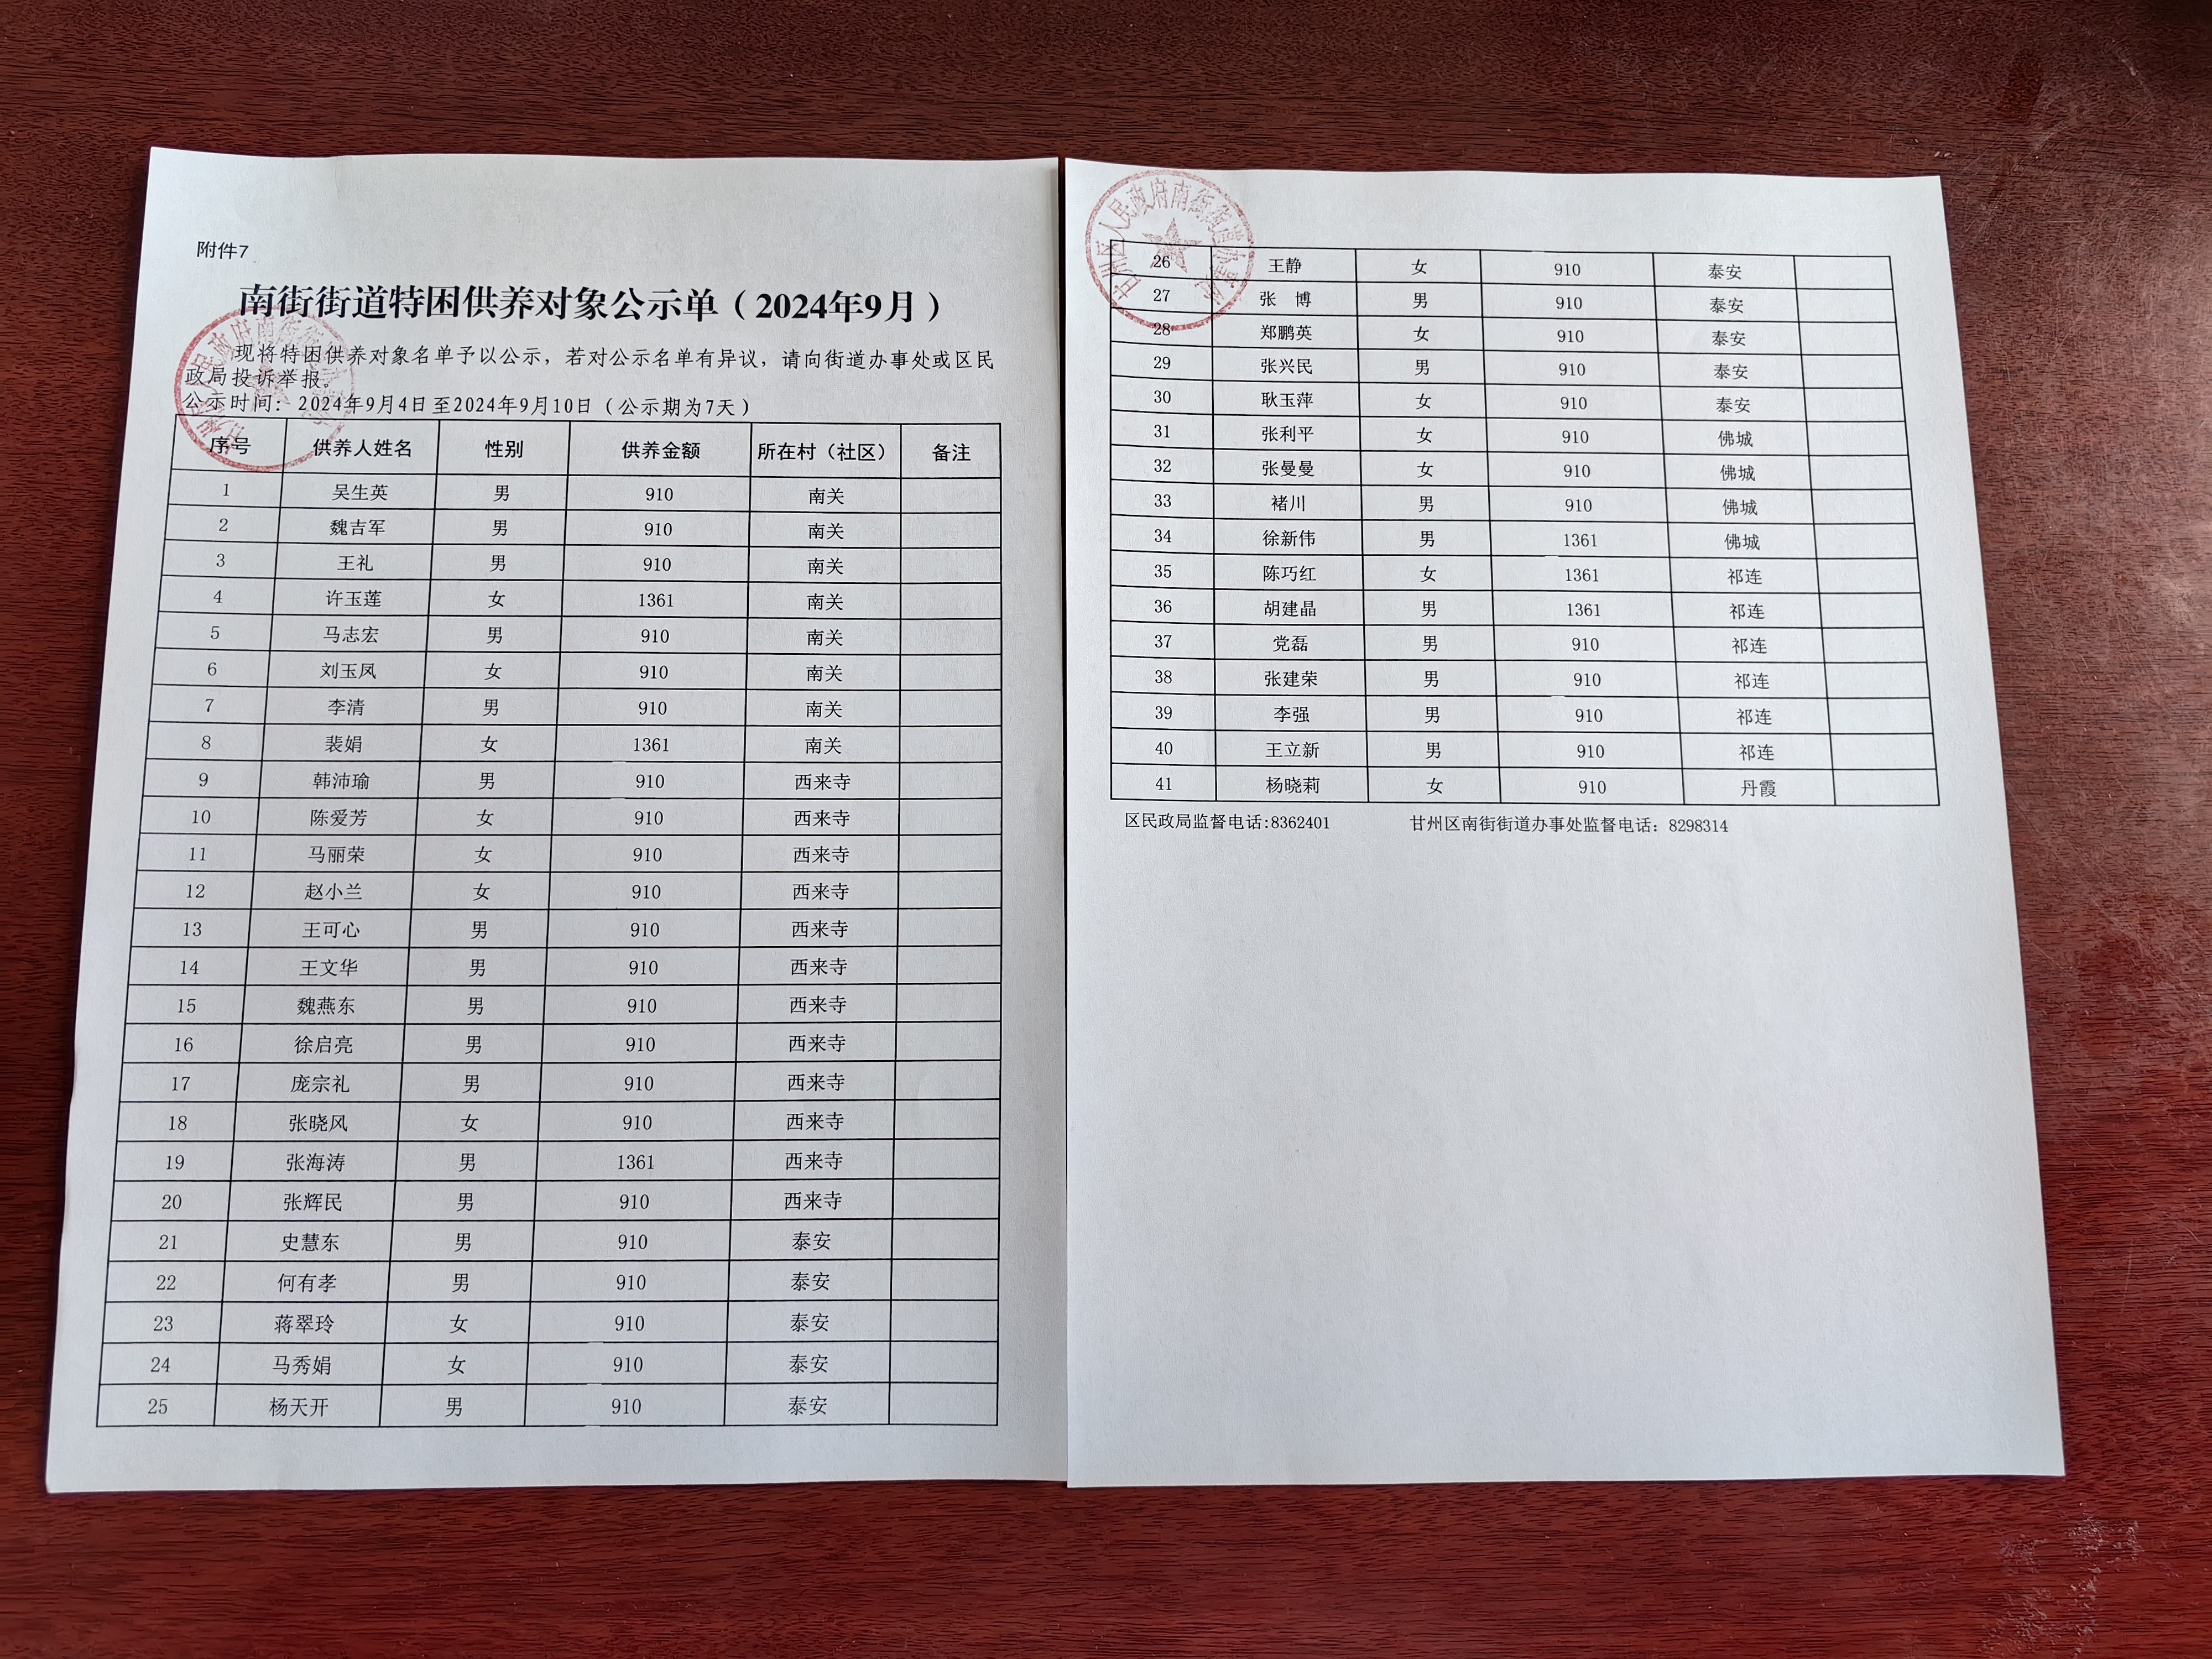 附件7
南街街道特困供养对象公示单（2024年9月）
现将特困供养对象名单予以公示，若对公示名单有异议，请向街道办事处或区民
政局投诉举报。
公示时间：2024年9月4日至2024年9月10日（公示期为7天）
序号 供养人姓名 性别 供养金额 所在村（社区） 备注
1 吴生英 男 910 南关
2 魏吉军 男 910 南关
3 王礼 男 910 南关
4 许玉莲 女 1361 南关
5 马志宏 男 910 南关
6 刘玉凤 女 910 南关
7 李清 男 910 南关
8 裴娟 女 1361 南关
9 韩沛瑜 男 910 西来寺
10 陈爱芳 女 910 西来寺
11 马丽荣 女 910 西来寺
12 赵小兰 女 910 西来寺
13 王可心 男 910 西来寺
14 王文华 男 910 西来寺
15 魏燕东 男 910 西来寺
16 徐启亮 男 910 西来寺
17 庞宗礼 男 910 西来寺
18 张晓风 女 910 西来寺
19 张海涛 男 1361 西来寺
20 张辉民 男 910 西来寺
21 史慧东 男 910 泰安
22 何有孝 男 910 泰安
23 蒋翠玲 女 910 泰安
24 马秀娟 女 910 泰安
25 杨天开 男 910 泰安
甘州区人民政府南街街道办事处
26 王静 女 910 泰安
27 张 博 男 910 泰安
28 郑鹏英 女 910 泰安
29 张兴民 男 910 泰安
30 耿玉萍 女 910 泰安
31 张利平 女 910 佛城
32 张曼曼 女 910 佛城
33 褚川 男 910 佛城
34 徐新伟 男 1361 佛城
35 陈巧红 女 1361 祁连
36 胡建晶 男 1361 祁连
37 党磊 男 910 祁连
38 张建荣 男 910 祁连
39 李强 男 910 祁连
40 王立新 男 910 祁连
41 杨晓莉 女 910 丹霞
区民政局监督电话:8362401 甘州区南街街道办事处监督电话：8298314